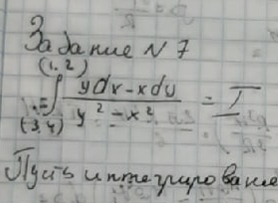 Задание N 7
(1,2)
∫ ydx-xdy / y²-x² = I
(3,4)
Пусть интегрирование